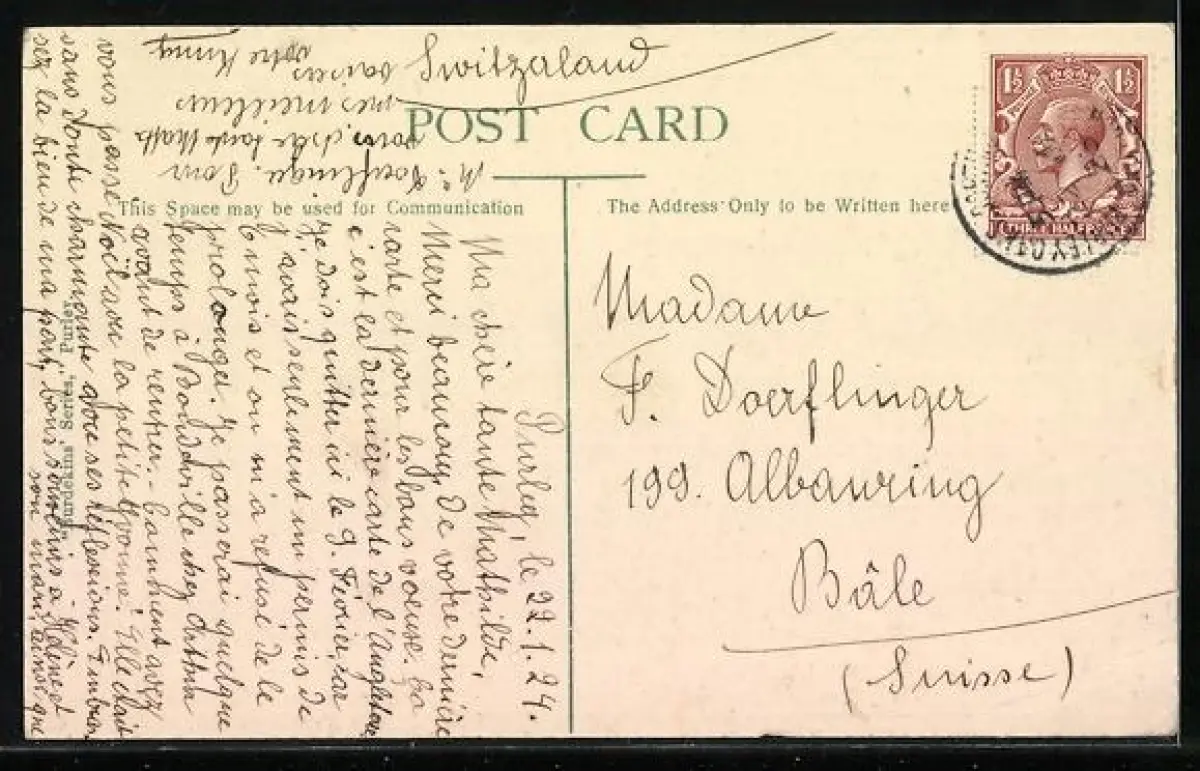 Switzerland
POST CARD
This Space may be used for Communication
The Address Only to be Written here
1½ 1½
THREE HALFPENCE
Madame
F. Doerflinger
199. Allbanring
Bâle
(Suisse)
Purley, le 22.1.24.
Ma chère tante Mathilde,
Merci beaucoup de votre dernière
carte et pour les bons voeux. Ça
c'est la dernière carte de l'Angleterre
je dois quitter ici le 9. Février, car
j'avais seulement un permis de
6 mois et on m'a refusé de le
prolonger. Je passerai quelque
temps à chez
avant de rentrer. - Comment avez
vous passé Noël avec la petite Yvonne? Elle était
sans doute charmante avec ses réflexions.
la bien de ma part, bons souvenirs à Hélène et
son mari, ainsi que
Mr. Doerflinger. Pour
vous, chère tante Math.
mes meilleurs
baisers
votre
Sundetuns Series, Purley